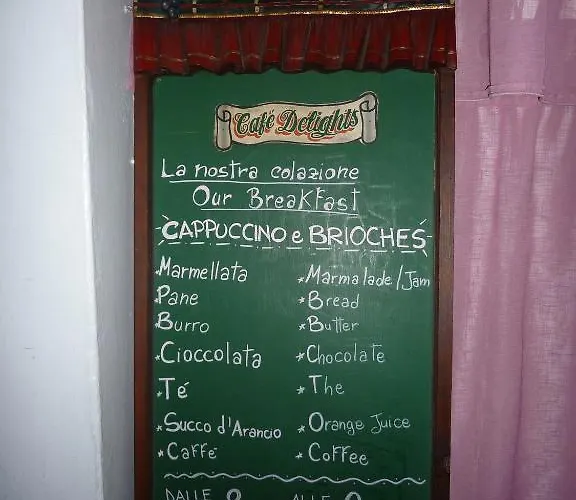 Café Delights
La nostra colazione
Our Breakfast
CAPPUCCINO e BRIOCHES
*Marmellata *Marmalade/Jam
*Pane *Bread
*Burro *Butter
*Cioccolata *Chocolate
*Té *The
*Succo d'Arancio *Orange Juice
*Caffe *Coffee
DALLE ALLE